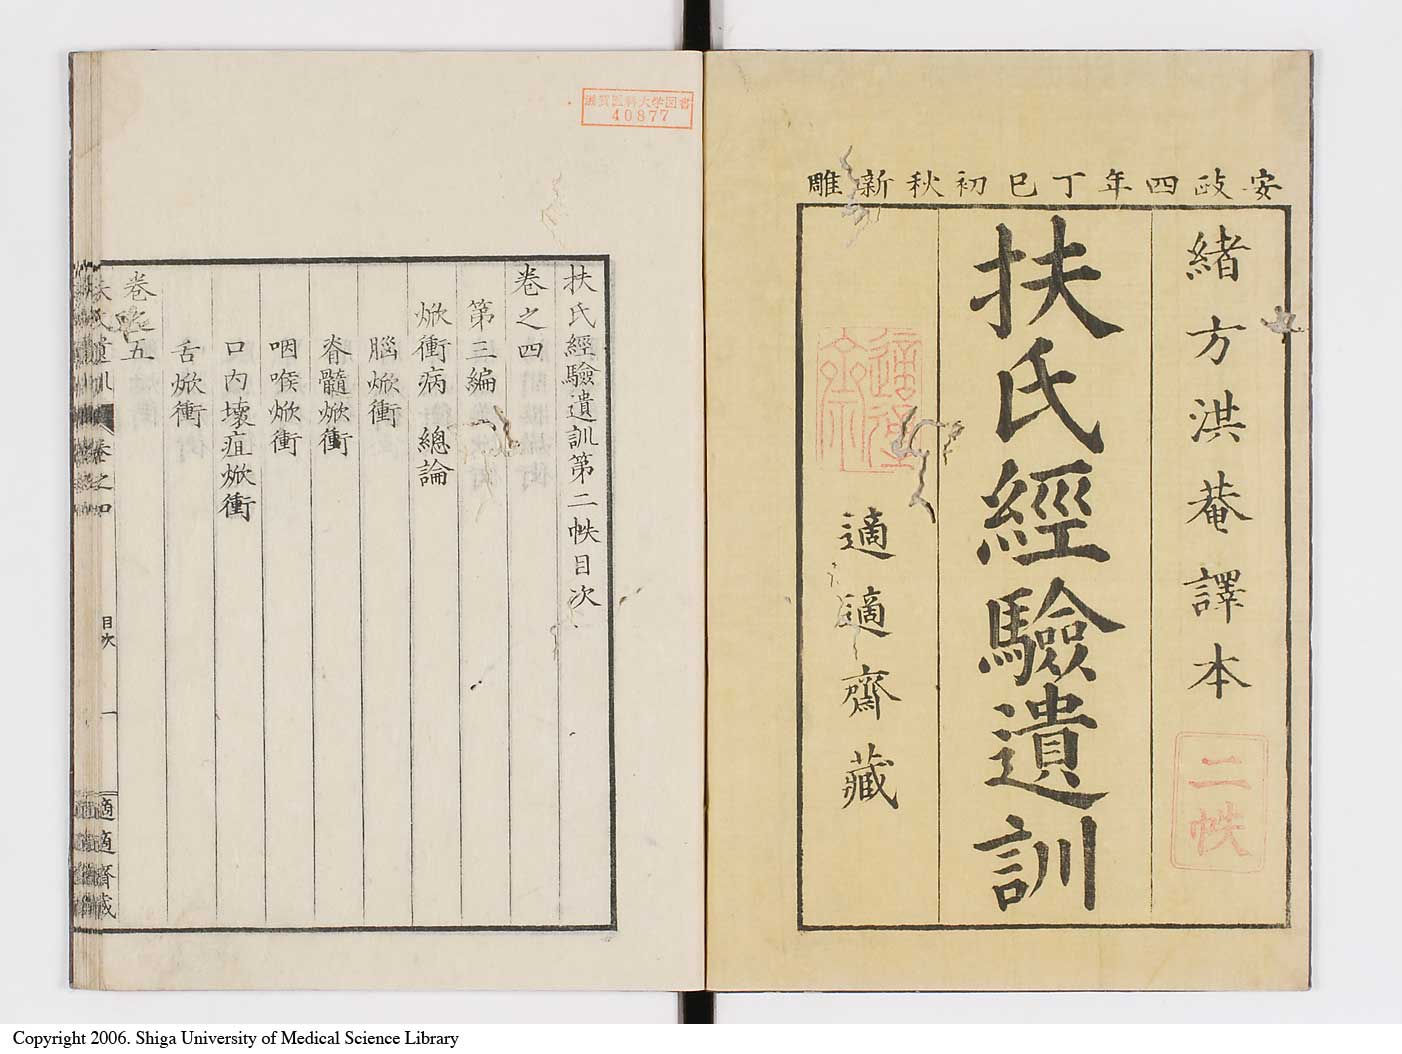 安政四年丁巳初秋新雕
緒方洪菴譯本
二帙
扶氏經驗遺訓
適適齋藏
滋賀医科大学図書
40877
扶氏經驗遺訓第二帙目次
卷之四
第三編
焮衝病 總論
腦焮衝
脊髓焮衝
咽喉焮衝
口內壞疽焮衝
舌焮衝
卷之五
卷之四
目次
一
適適齋藏
Copyright 2006. Shiga University of Medical Science Library